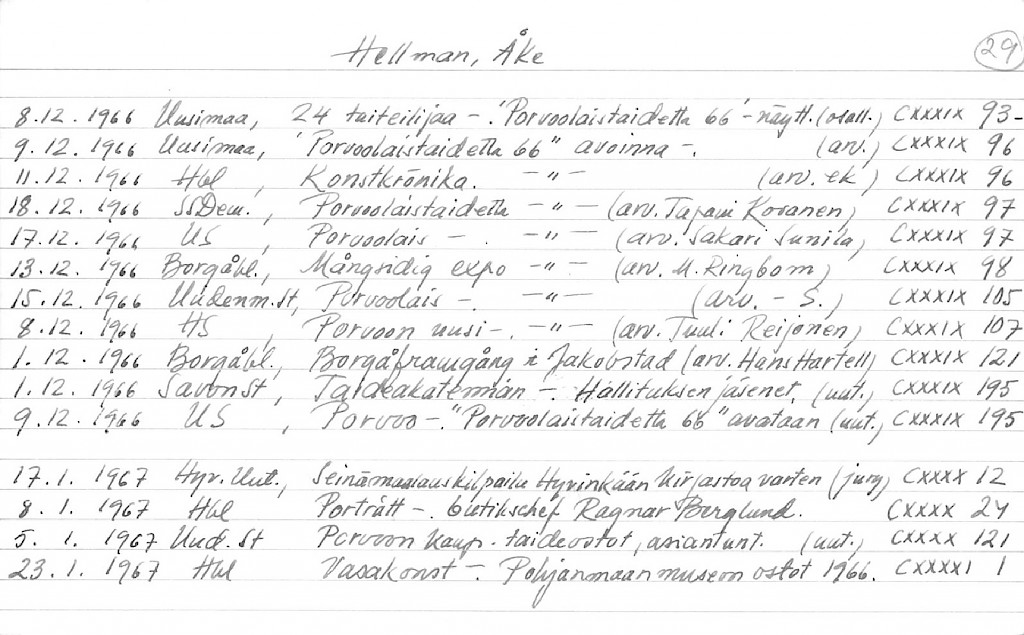 Hellman, Åke 29
8.12.1966 Uusimaa, 24 taiteilijaa -. "Porvoolaistaidetta 66"-näytt. (osall.) CXXXIX 93-
9.12.1966 Uusimaa, "Porvoolaistaidetta 66" avoinna -. (arv.) CXXXIX 96
11.12.1966 Hbl, Konstkrönika. -"- (arv. ek) CXXXIX 96
18.12.1966 SSDem., Porvoolaistaidetta -"- (arv. Tapani Kovanen) CXXXIX 97
17.12.1966 US, Porvoolais -. -"- (arv. Sakari Sunila) CXXXIX 97
13.12.1966 Borgåbl., Mångsidig expo -"- (arv. M. Ringbom) CXXXIX 98
15.12.1966 Uudenm.St, Porvoolais -. -"- (arv. - S.) CXXXIX 105
8.12.1966 HS, Porvoon uusi -. -"- (arv. Tuuli Reijonen) CXXXIX 107
1.12.1966 Borgåbl., Borgåframgång i Jakobstad (arv. Hans Hartell) CXXXIX 121
1.12.1966 SavonSt, Taideakatemian -. Hallituksen jäsenet, (uut.) CXXXIX 195
9.12.1966 US, Porvoo -. "Porvoolaistaidetta 66" avataan (uut.) CXXXIX 195
17.1.1967 Hyv.Uut., Seinämaalauskilpailu Hyvinkään kirjastoa varten (jury) CXXXX 12
8.1.1967 Hbl Porträtt -. butikschef Ragnar Berglund. CXXXX 24
5.1.1967 Uud.St Porvoon kaup. taideostot, asiantunt. (uut.) CXXXX 121
23.1.1967 Hbl Vasakonst -. Pohjanmaan museon ostot 1966. CXXXXI 1